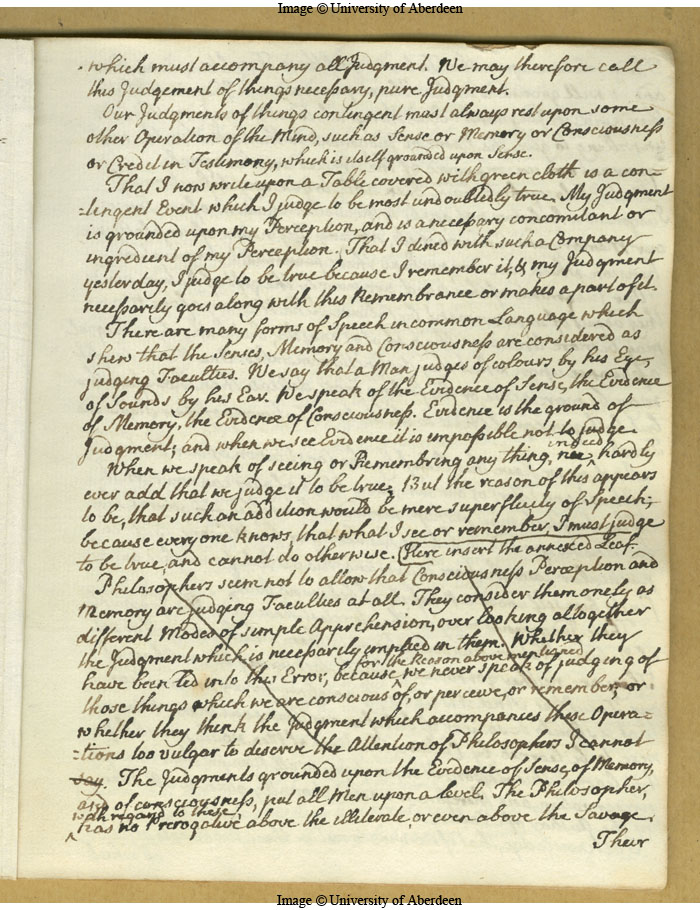 Image © University of Aberdeen
which must accompany all Judgment. We may therefore call
this Judgement of things necessary, pure Judgment.
Our Judgments of things contingent must always rest upon some
other Operation of the Mind, such as Sense or Memory or Consciousness
or Credit in Testimony, which is itself grounded upon Sense.
That I now write upon a Table covered with green cloth is a con=
=tingent Event which I judge to be most undoubtedly true. My Judgment
is grounded upon my Perception, and is a necessary concomitant or
ingredient of my Perception. That I dined with such a Company
yesterday, I judge to be true because I remember it, & my Judgment
necessarily goes along with this Remembrance or makes a part of it.
There are many forms of Speech in common Language which
shew that the Senses, Memory and Consciousness are considered as
judging Faculties. We say that a Man judges of colours by his Eye,
of Sounds by his Ear. We speak of the Evidence of Sense, the Evidence
of Memory, the Evidence of Consciousness. Evidence is the ground of
Judgment; and when we see Evidence it is impossible not to judge.
indeed
When we speak of seeing or Remembring any thing, we hardly
ever add that we judge it to be true. But the reason of this appears
to be, that such an addition would be mere superfluity of Speech,
because every one knows, that what I see or remember, I must judge
to be true, and cannot do otherwise. (Here insert the annexed Leaf.
Philosophers seem not to allow that Consciousness Perception and
Memory are judging Faculties at all. They consider them onely as
different Modes of simple Apprehension, over looking altogether
the Judgment which is necessarily implied in them. Whether they
for the Reason above mentioned
have been led into this Error, because we never speak of judging of
those things which we are conscious of, or perceive, or remember; or
whether they think the Judgment which accompanies these Opera=
=tions too vulgar to deserve the Attention of Philosophers I cannot
say. The Judgments grounded upon the Evidence of Sense, of Memory,
and of consciousness, put all Men upon a level. The Philosopher,
with regard to these,
has no Prerogative above the illiterate, or even above the Savage.
Their
Image © University of Aberdeen